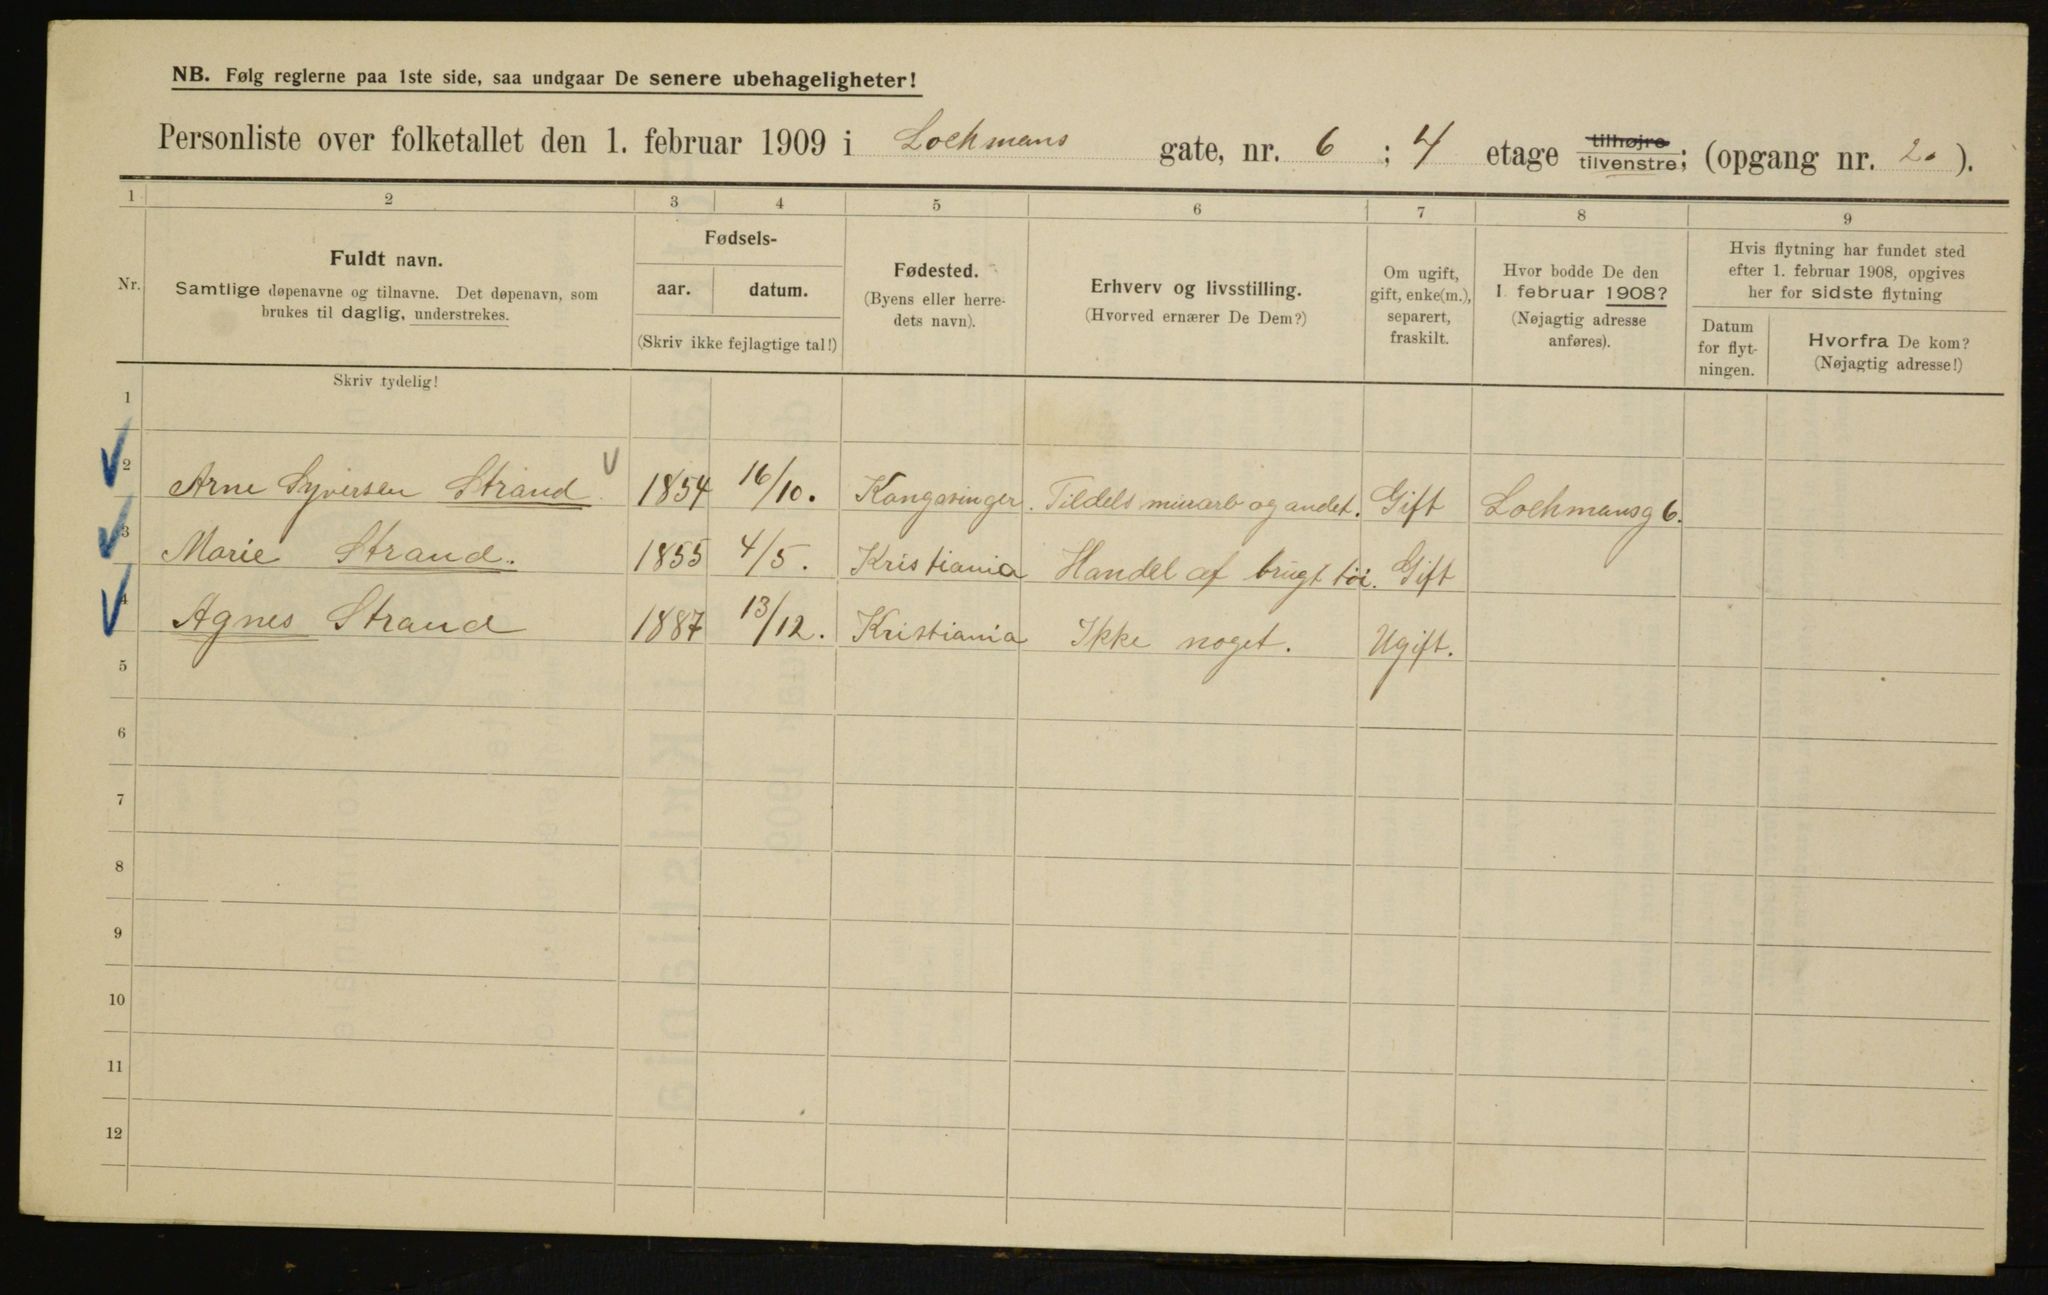 NB. Følg reglerne paa 1ste side, saa undgaar De senere ubehageligheter!
Personliste over folketallet den 1. februar 1909 i Lochmans gate, nr. 6 ; 4 etage tilhøjre tilvenstre; (opgang nr. 2. ).
1 2 3 4 5 6 7 8 9
Nr.
Fuldt navn.
Samtlige døpenavne og tilnavne. Det døpenavn, som
brukes til daglig, understrekes.
Skriv tydelig!
Fødsels-
aar. datum.
(Skriv ikke fejlagtige tal!)
Fødested.
(Byens eller herre-
dets navn).
Erhverv og livsstilling.
(Hvorved ernærer De Dem?)
Om ugift,
gift, enke(m.),
separert,
fraskilt.
Hvor bodde De den
1. februar 1908?
(Nøjagtig adresse
anføres).
Hvis flytning har fundet sted
efter 1. februar 1908, opgives
her for sidste flytning
Datum
for flyt-
ningen.
Hvorfra De kom?
(Nøjagtig adresse!)
1
2 Arne Syversen Strand 1854 16/10. Kongsvinger. Tildels murarb og andet. Gift Lochmansg 6.
3 Marie Strand. 1855 4/5. Kristiania Handel af brugt tøi. Gift
4 Agnes Strand 1887 13/12. Kristiania Ikke noget. Ugift.
5
6
7
8
9
10
11
12